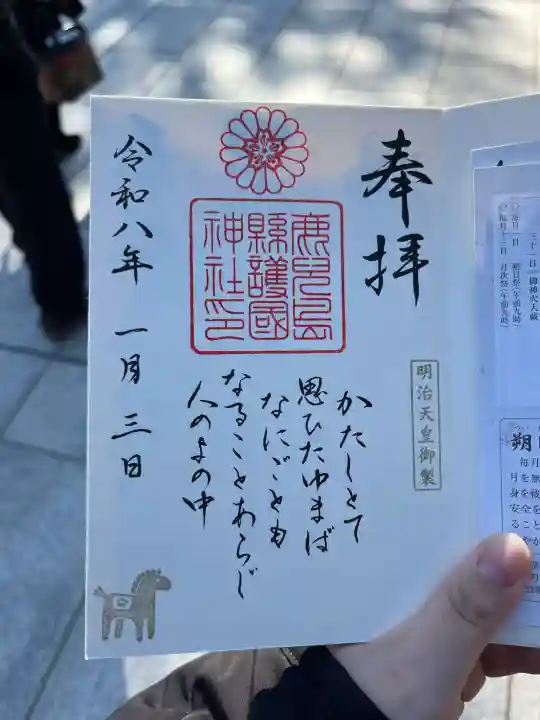 奉拝
明治天皇御製
かたしとて
思ひたゆまば
なにごとも
なることあらじ
人のよの中
鹿児島
縣護國
神社印
令和八年 一月 三日
三十一日 御神火天蔵
毎月一日 朔日祭(午前九時)
毎月十三日 月次祭(午前九時)
朔
毎月
月を無
身を祓
安全を
ること